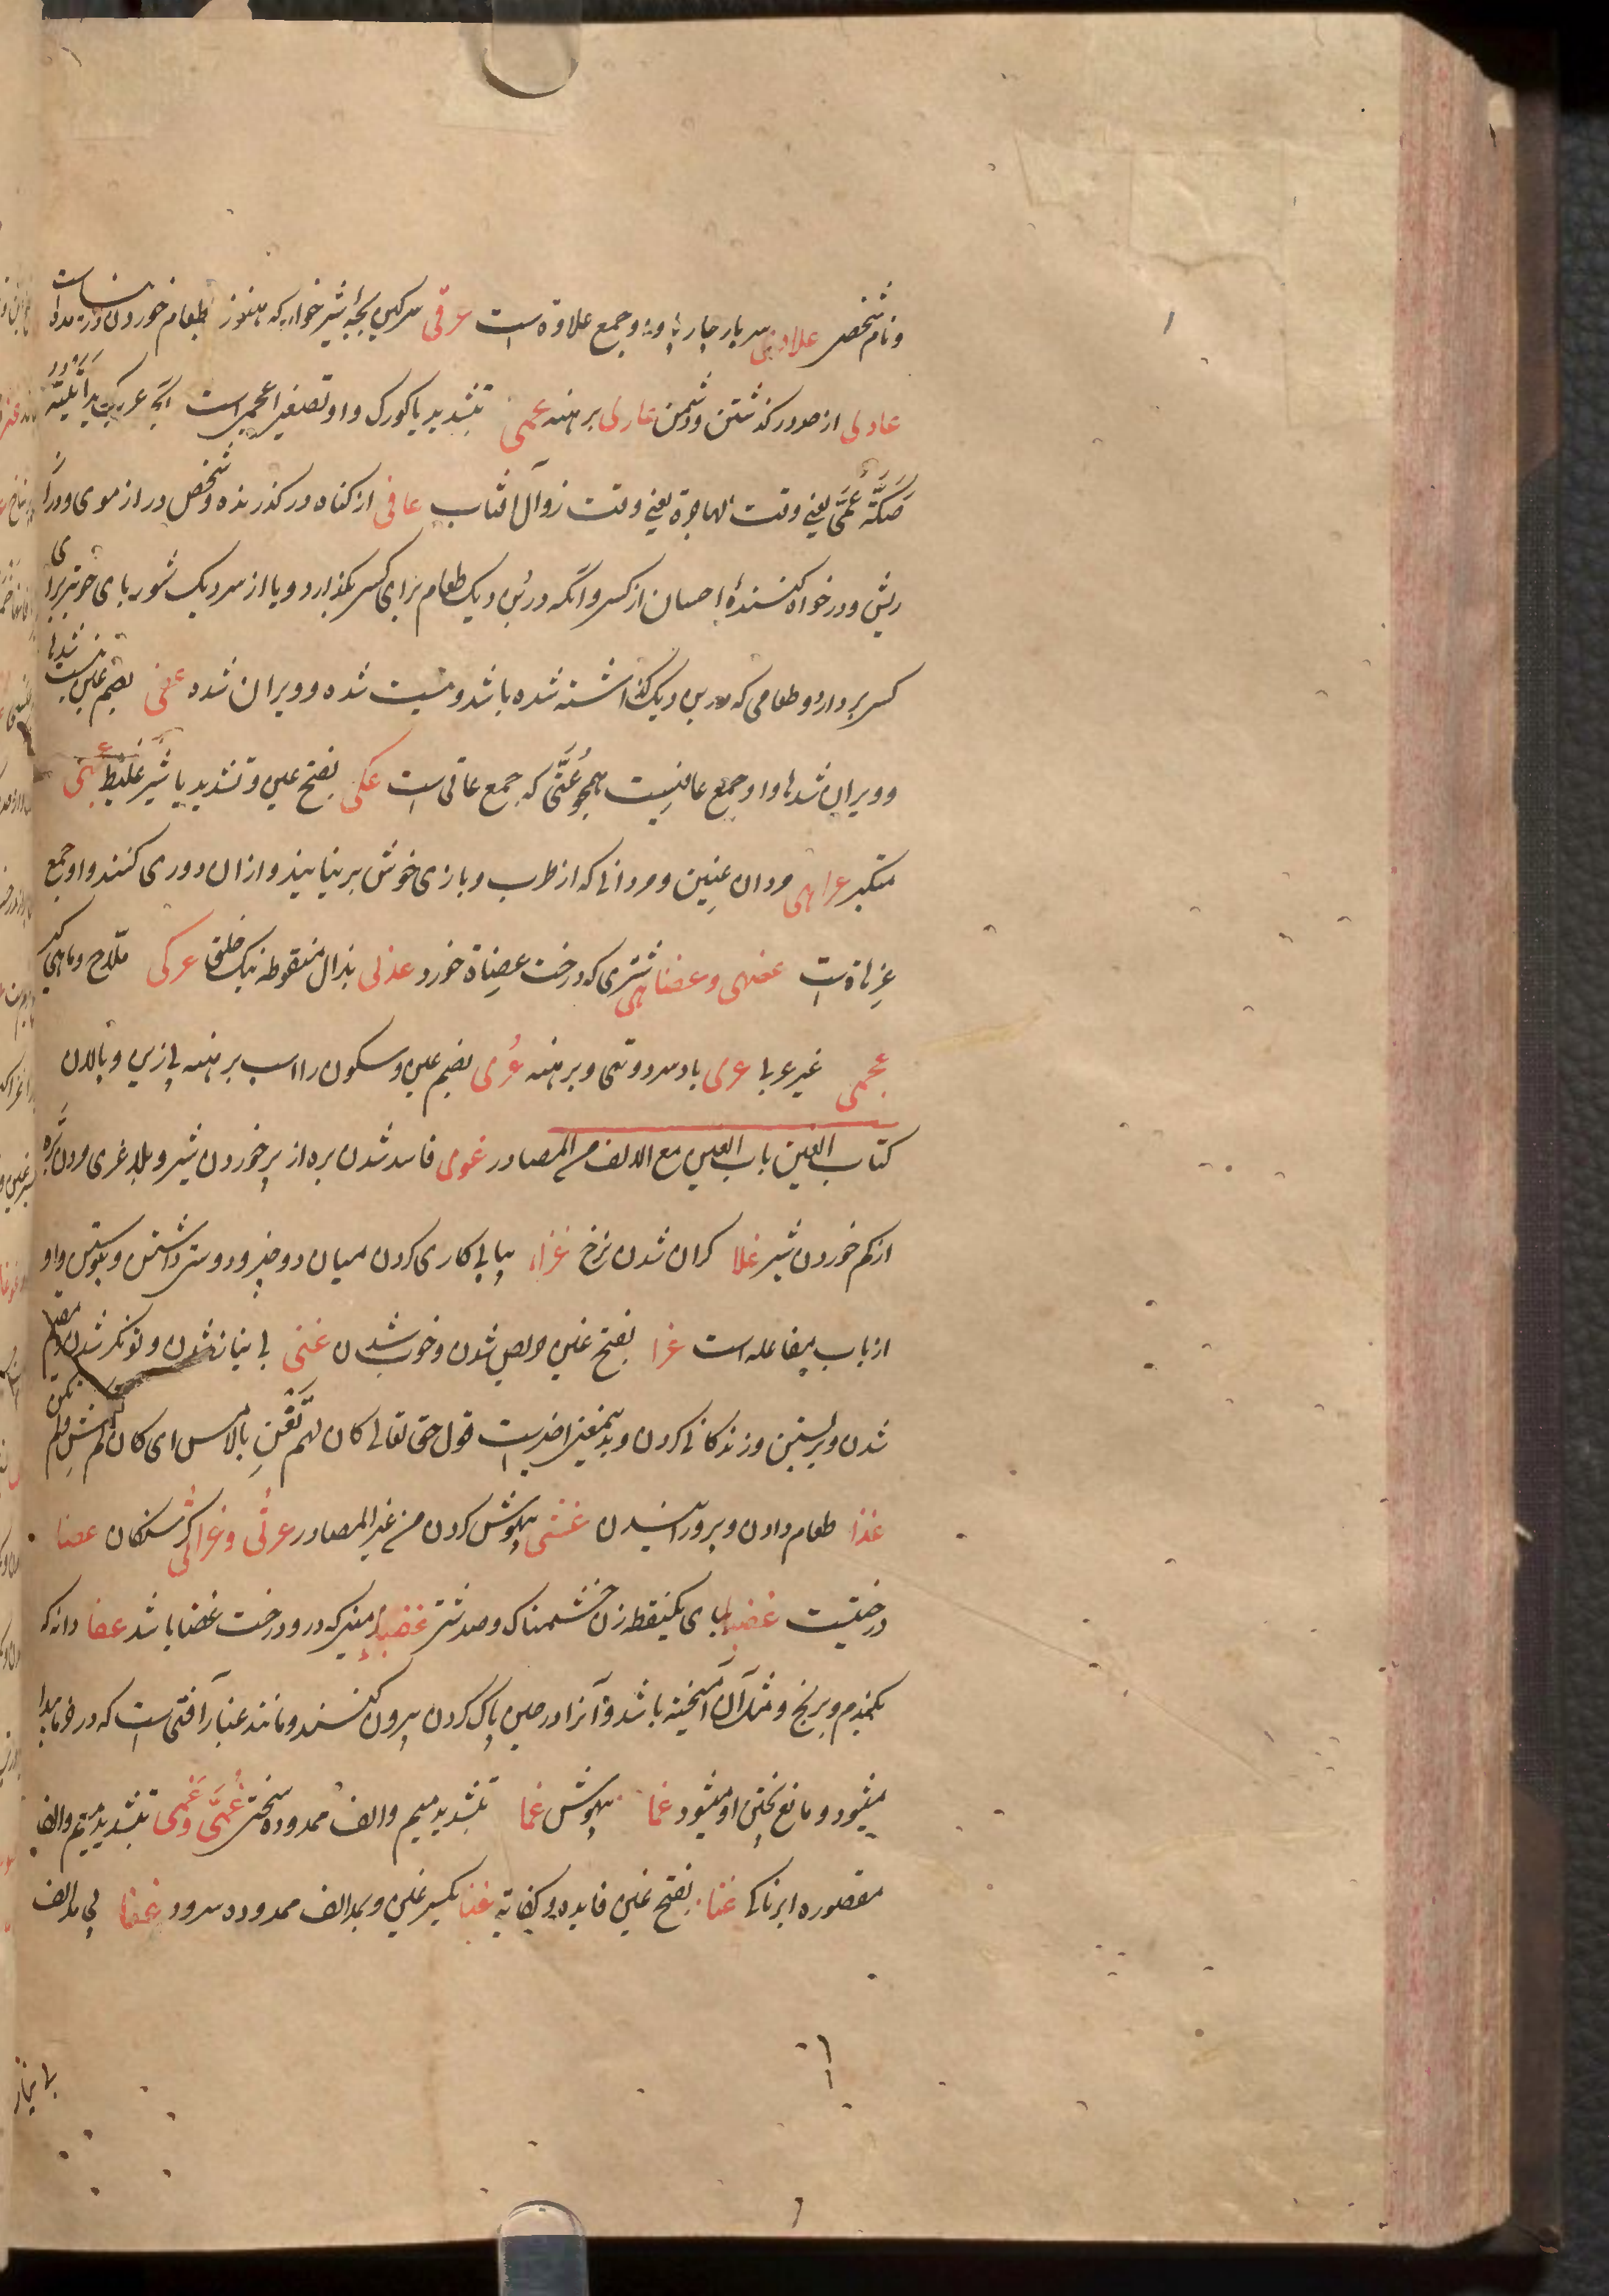 و نام شخص علاوی سر بار چار پا و او جمع علاوة است عرقی سرکین بچهٔ شیر خواره که هنوز طعام خوردن در نیامده است
عادی از حد در کذشتن و دشمن عاری برهنه عمی بتشدید یا کورک و او تصغیر اعمی است
صَکَّة عُمَیّ یعنی وقت الهاجرة یعنی وقت زوال آفتاب عافی از کناه در کذرنده و شخص دراز موی و دراز
ریش و در خواه کنندهٔ احسان از کسی و انکه در بُن دیک طعام برای کسی بکذارد و یا از سر دیک شوربای خوبتر برای
کسی بردارد و طعامی که در بن دیک کذاشته شده باشد و نیست شده و ویران شده عفی بضم عین نیست شدها
و ویران شدها و او جمع عافیست همچو عُتَّی که جمع عاتی است عکی بفتح عین و تشدید یا شیر غلیظ عتی
متکبر عزاهی مردان عنین و مردانی که از طرب و بازی خوش بر نیایند و ازان دوری کنند و او جمع
عزهاة است عضهی و عضاهی شتری که درخت عضاة خورد عذی بذال منقوطه نیک خلق عرکی ملّاح و ماهی کیر
عجمی غیر عربی عری باد سرد و تهی و برهنه عُری بضم عین و سکون را اسب برهنه بی زین و پالان
کتاب الغین باب الغین مع الالف من المصادر غوی فاسد شدن بره از پر خوردن شیر و بلا غری مردن بره
از کم خوردن شیر غلا کران شدن نرخ غزاء پیاپی کاری کردن میان دو چیز و دوستی داشتن و پیوستن و او
از باب مفاعله است غرا بفتح غین حریص شدن و خوب شدن غنی بی نیاز شدن و تونکر شدن و مقیم
شدن و بر بستن و زندکانی کردن و بدین معنی اخیر است قول حق تعالی کان لم تغن بالامس ای کان لم تعش و لم تکن
غذا طعام دادن و پرورانیدن غشی بیهوش کردن من غیر المصادر غرثی و غراثی کرسنکان غضا
درختیست غضبا ببای یکنقطه زن خشمناک و صد شتر غضیا زمینی که درو درخت غضا باشد غفا دانه که
بکندم و برنج و مثل آن آمیخته باشد و آنرا در حین پاک کردن بیرون کنند و مانند غبار آفتی است که در خرما پیدا
میشود و مانع پختن او میشود غما بیهوش غما بتشدید میم و الف ممدوده سختی غُمَّی و غَمی بتشدید میم و الف
مقصوره ابرناکی غنا بفتح غین فایده و کفایة غنا بکسر غین و بمد الف ممدوده سرود غفا بی مد الف
بی نیاز